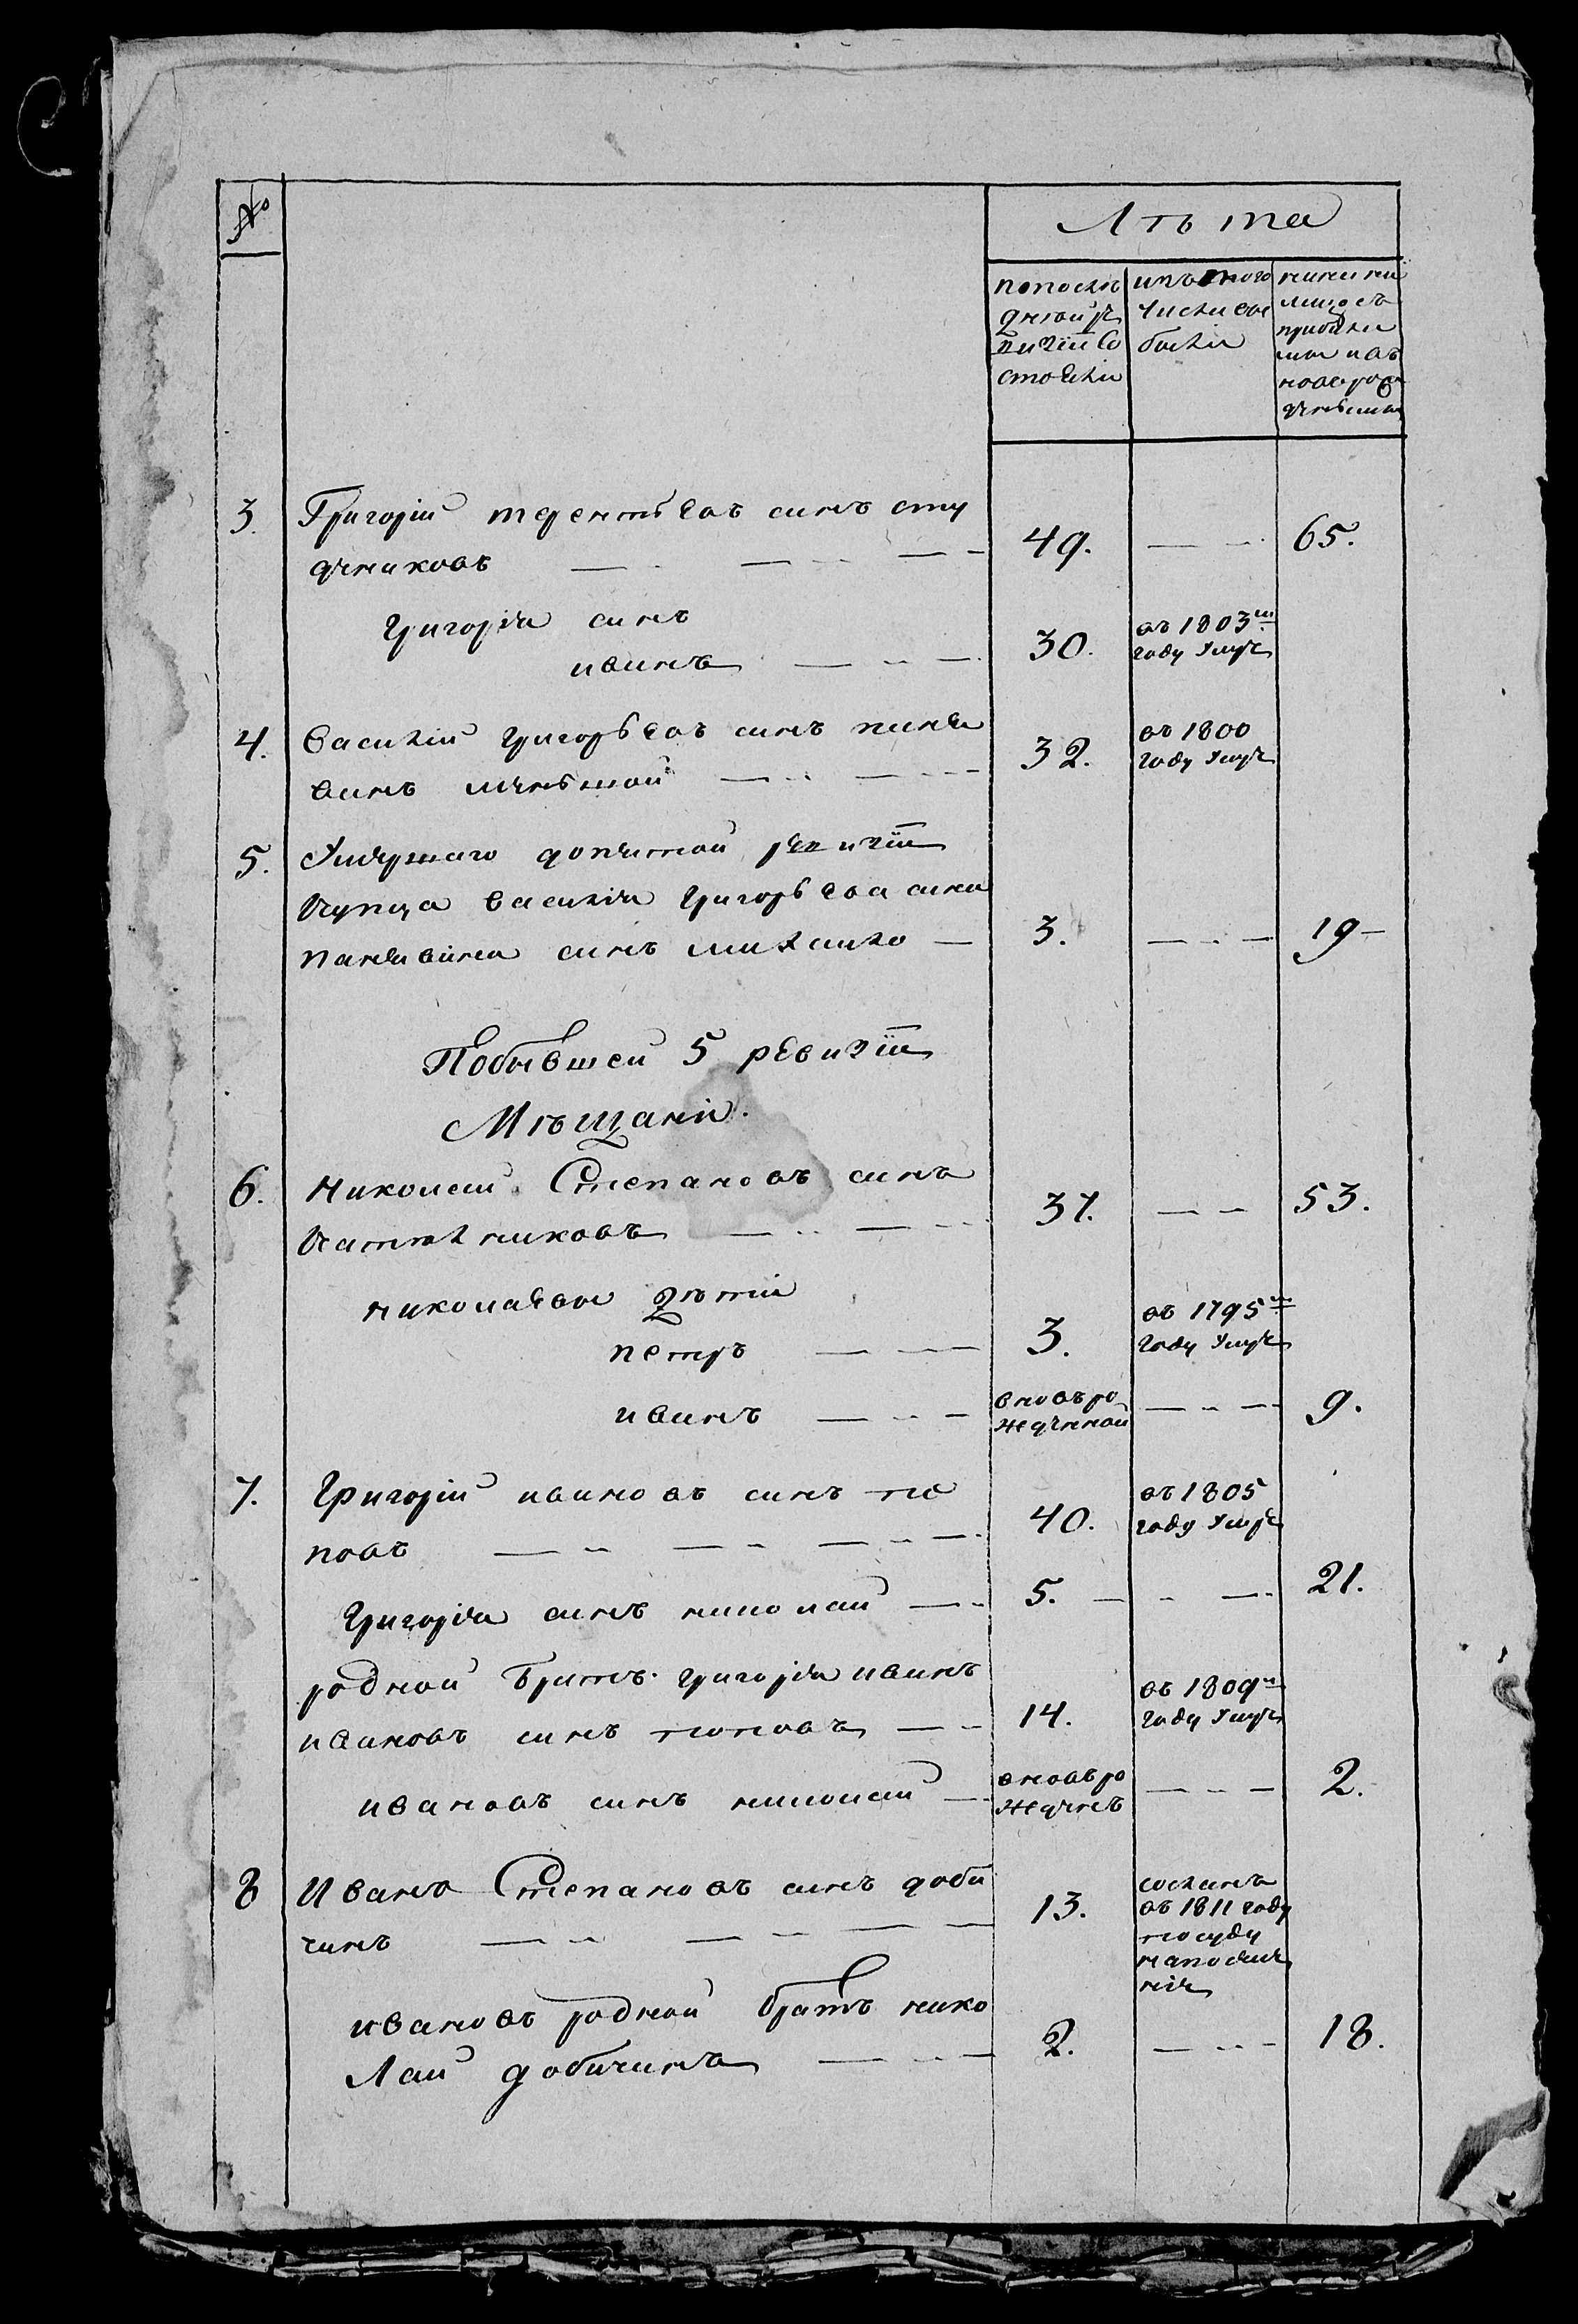 №
Лѣта
попослѣ
дней ре
визіи со
стояли
изъ оного
числа вы
были
ныне на
лицо съ
прибылы
ми и въ
новь рож
денными
3. Григорій терентьевъ сынъ сту
дениковъ 49. 65.
григорія сынъ
иванъ 30. въ 1803м году умре
4. василій григорьевъ сынъ панке
винъ меньшой 32. въ 1800 году умре
5. Умершаго допятой ревизіи
купца василія григорьева сына
панкевина сынъ михаило 3. 19
Побывшей 5 ревизіи
Мѣщани.
6. николай Степановъ сынъ
37. 53.
николаевы дѣти
петръ 3. въ 1795м году умре
иванъ вновь ро жденной 9.
7. Григорій ивановъ сынъ по
повъ 40. въ 1805 году умре
григорія сынъ николай 5. 21.
родной братъ григорія иванъ
ивановъ сынъ поповъ 14. въ 1809м году умре
ивановъ сынъ николай вновь ро жденъ 2.
8 Иванъ Степановъ сынъ добы
чинъ 13. сосланъ въ 1811 году посуду напоселе ніе
ивановъ родной братъ нико
лай добычинъ 2. 18.